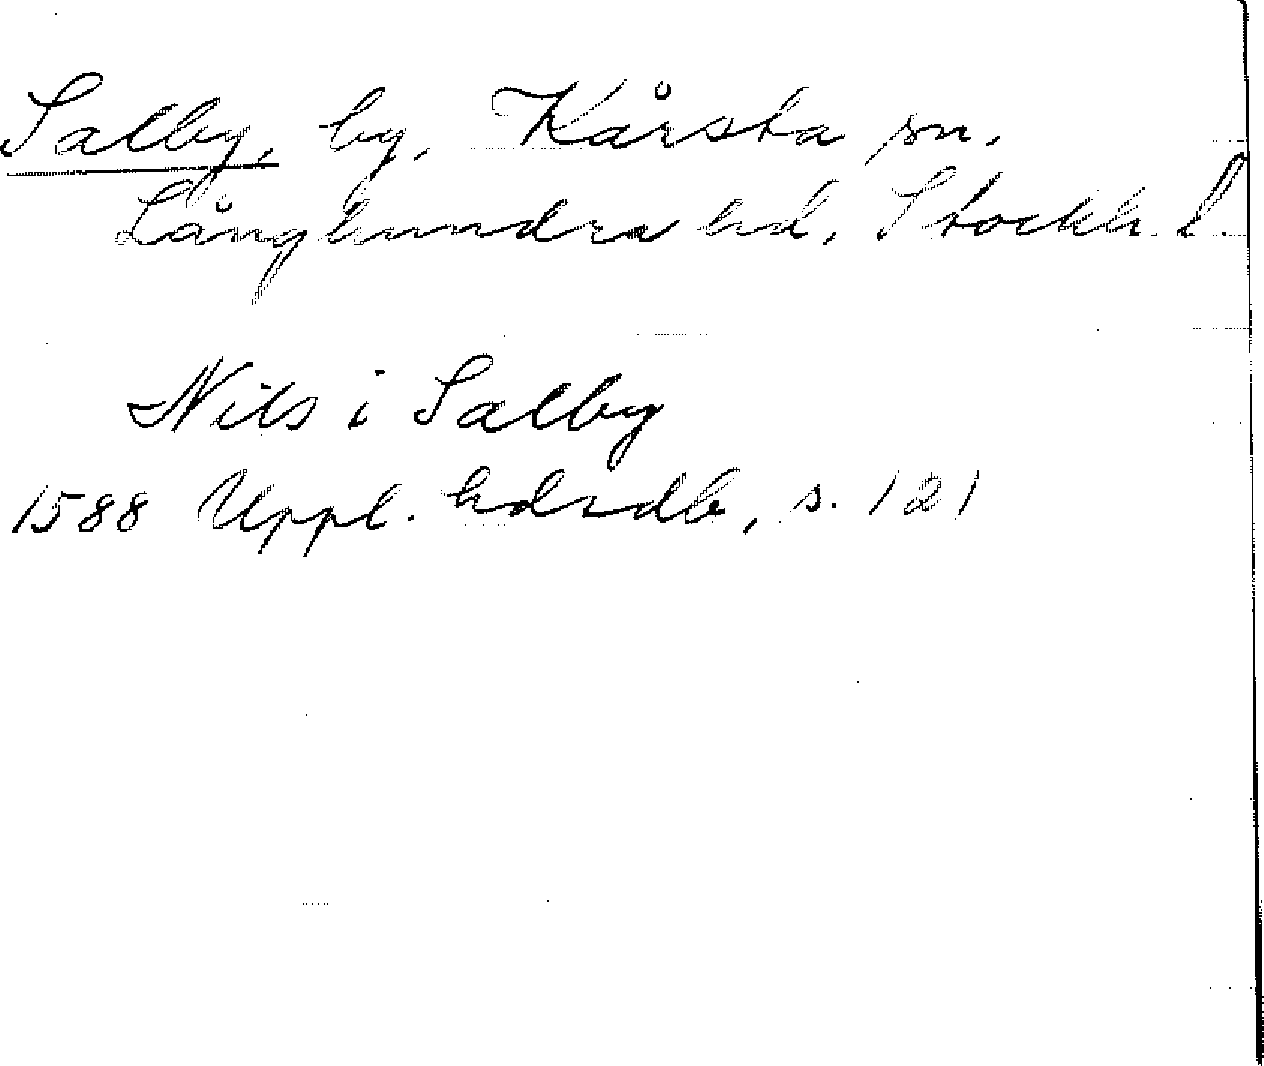 Salby, by, Kårsta sn,
Långhundra hd, Stockh. l.
Nils i Salby
1588 Uppl. hdrdb, s. 121